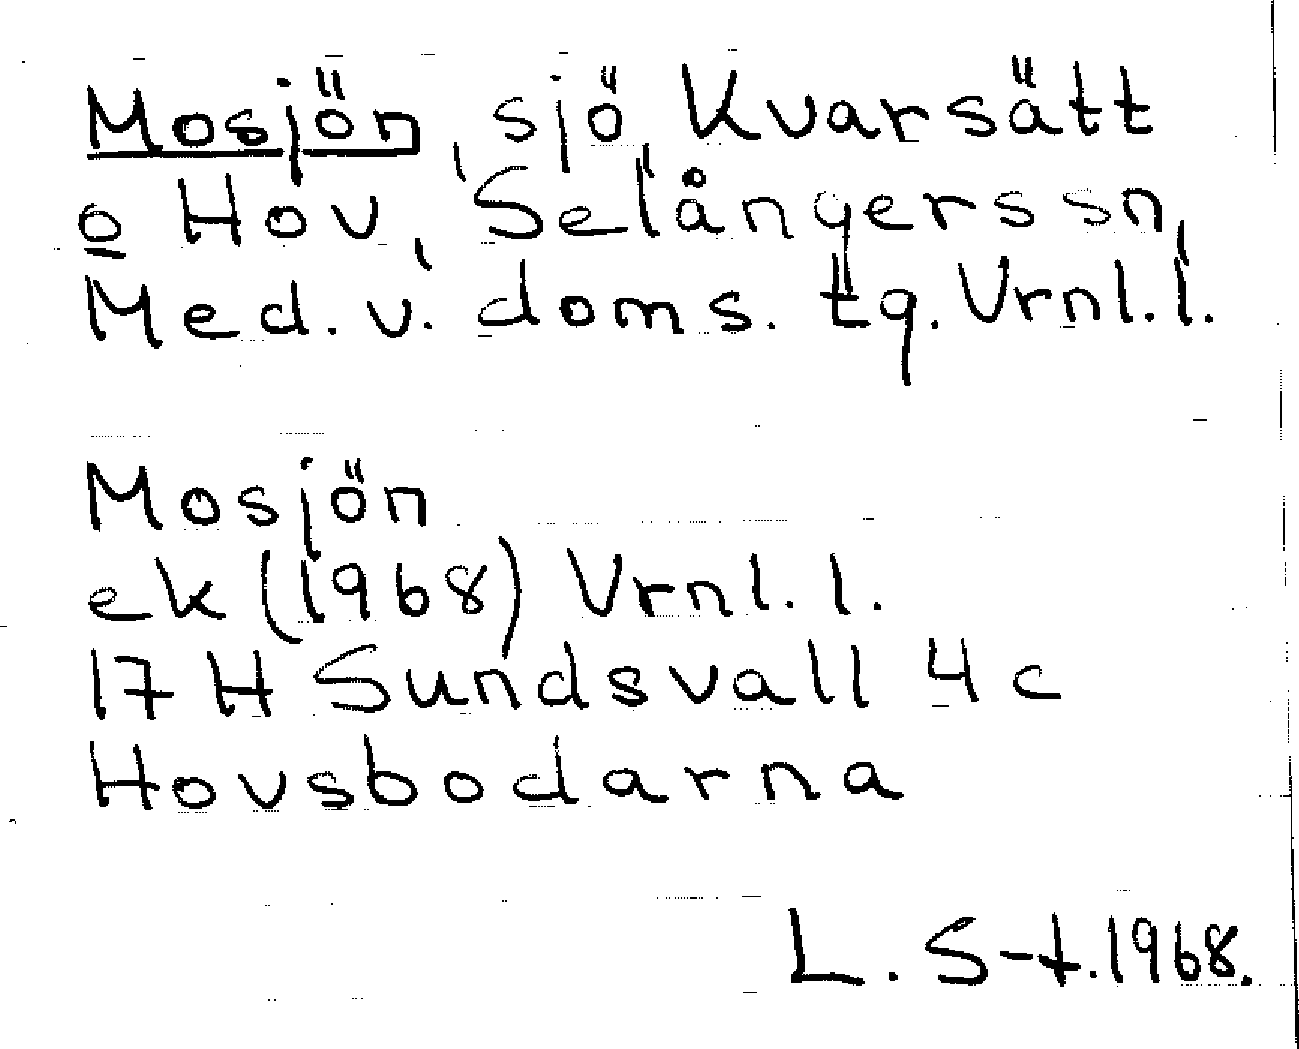 Mosjön, sjö, Kvarsätt
o Hov, Selångers sn,
Med. v. doms. tg. Vrnl. l.
Mosjön
ek (1968) Vrnl. l.
17 H Sundsvall 4 c
Hovsbodarna
L. S-t. 1968.